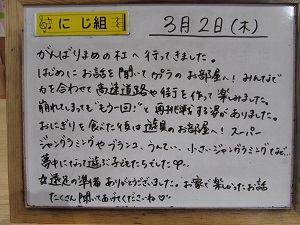 にじ組
3月2日(木)
がんばりまめの杜へ行ってきました。
はじめにお話を聞いてカプラのお部屋へ!みんなで
力を合わせて高速道路や街を作って楽しみました。
崩れてしまっても"もう一回!"と再挑戦する姿がありました。
おにぎりを食べた後は遊具のお部屋へ!スーパー
ジャングラミングやブランコ、うんてい、小さいジャングラミングなど…
夢中になって遊ぶ子どもたちでした♡。
☆遠足の準備ありがとうございました。お家で楽しかったお話
たくさん聞いてあげてくださいね♡